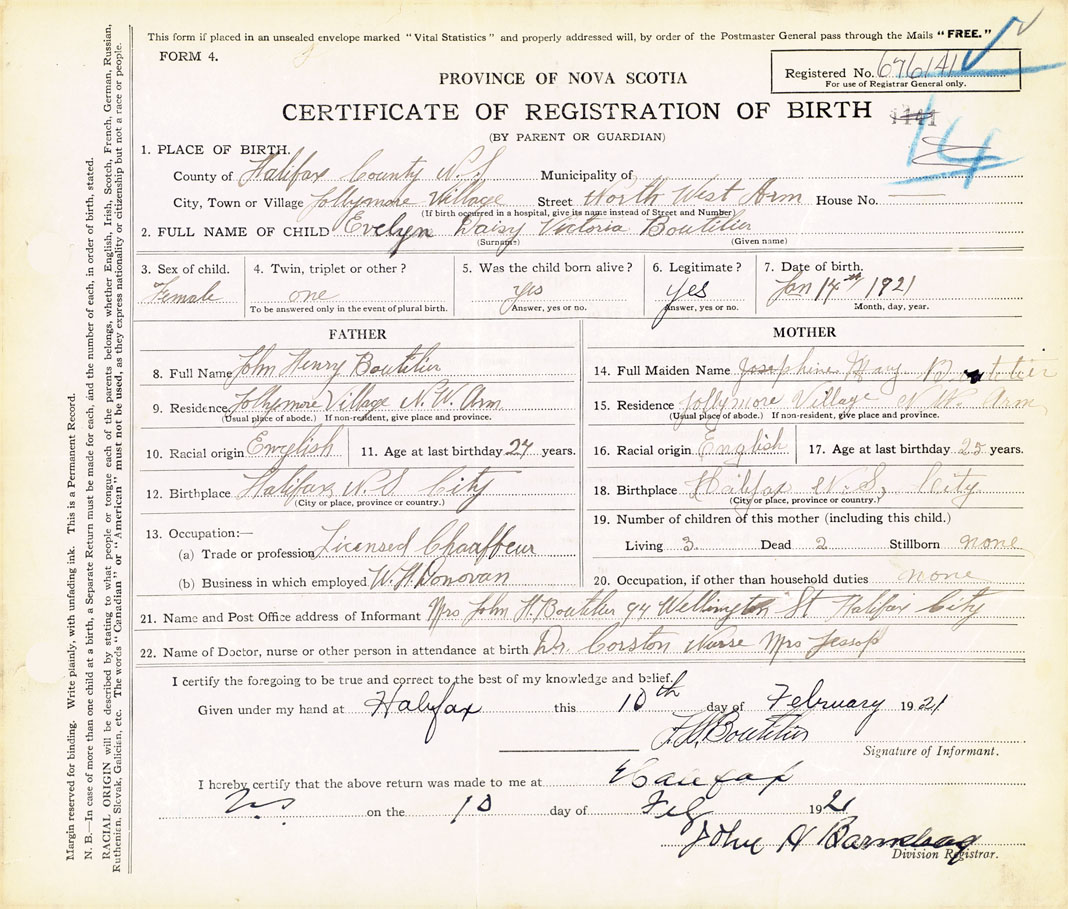 This form if placed in an unsealed envelope marked "Vital Statistics" and properly addressed will, by order of the Postmaster General pass through the Mails "FREE."
FORM 4.
Registered No. 676141
For use of Registrar General only.
PROVINCE OF NOVA SCOTIA
CERTIFICATE OF REGISTRATION OF BIRTH
1141
14
(BY PARENT OR GUARDIAN)
1. PLACE OF BIRTH.
County of Halifax County N.S. Municipality of
City, Town or Village Jollymore Village Street North West Arm House No.
(If birth occurred in a hospital, give its name instead of Street and Number)
2. FULL NAME OF CHILD Evelyn Daisy Victoria Boutilier
(Surname) (Given name)
3. Sex of child. 4. Twin, triplet or other? 5. Was the child born alive? 6. Legitimate? 7. Date of birth.
Female one yes yes Jan 14th 1921
To be answered only in the event of plural birth. Answer, yes or no. Answer, yes or no. Month, day, year.
FATHER
8. Full Name John Henry Boutilier
9. Residence Jollymore Village N.W. Arm
(Usual place of abode.) If non-resident, give place and province.
10. Racial origin English 11. Age at last birthday 27 years.
12. Birthplace Halifax N.S City
(City or place, province or country.)
13. Occupation:—
(a) Trade or profession Licensed Chauffeur
(b) Business in which employed W.H. Donovan
MOTHER
14. Full Maiden Name Josephine May Boutilier
15. Residence Jollymore Village N.W. Arm
(Usual place of abode.) If non-resident, give place and province.
16. Racial origin English 17. Age at last birthday 25 years.
18. Birthplace Halifax N.S. City
(City or place, province or country.)
19. Number of children of this mother (including this child.)
Living 3. Dead 2 Stillborn none
20. Occupation, if other than household duties none
21. Name and Post Office address of Informant Mrs John H. Boutilier 94 Wellington St Halifax City
22. Name of Doctor, nurse or other person in attendance at birth Dr. Corston Nurse Mrs Jessop
I certify the foregoing to be true and correct to the best of my knowledge and belief.
Given under my hand at Halifax this 10th day of February 1921
Boutilier
Signature of Informant.
I hereby certify that the above return was made to me at Halifax
N.S. on the 10 day of Feb 1921
John H
Division Registrar.
Margin reserved for binding. Write plainly, with unfading ink. This is a Permanent Record.
N. B.—In case of more than one child at a birth, a Separate Return must be made for each, and the number of each, in order of birth, stated.
RACIAL ORIGIN will be described by stating to what people or tongue each of the parents belongs, whether English, Irish, Scotch, French, German, Russian,
Ruthenian, Slovak, Galician, etc. The words "Canadian" or "American" must not be used, as they express nationality or citizenship but not a race or people.